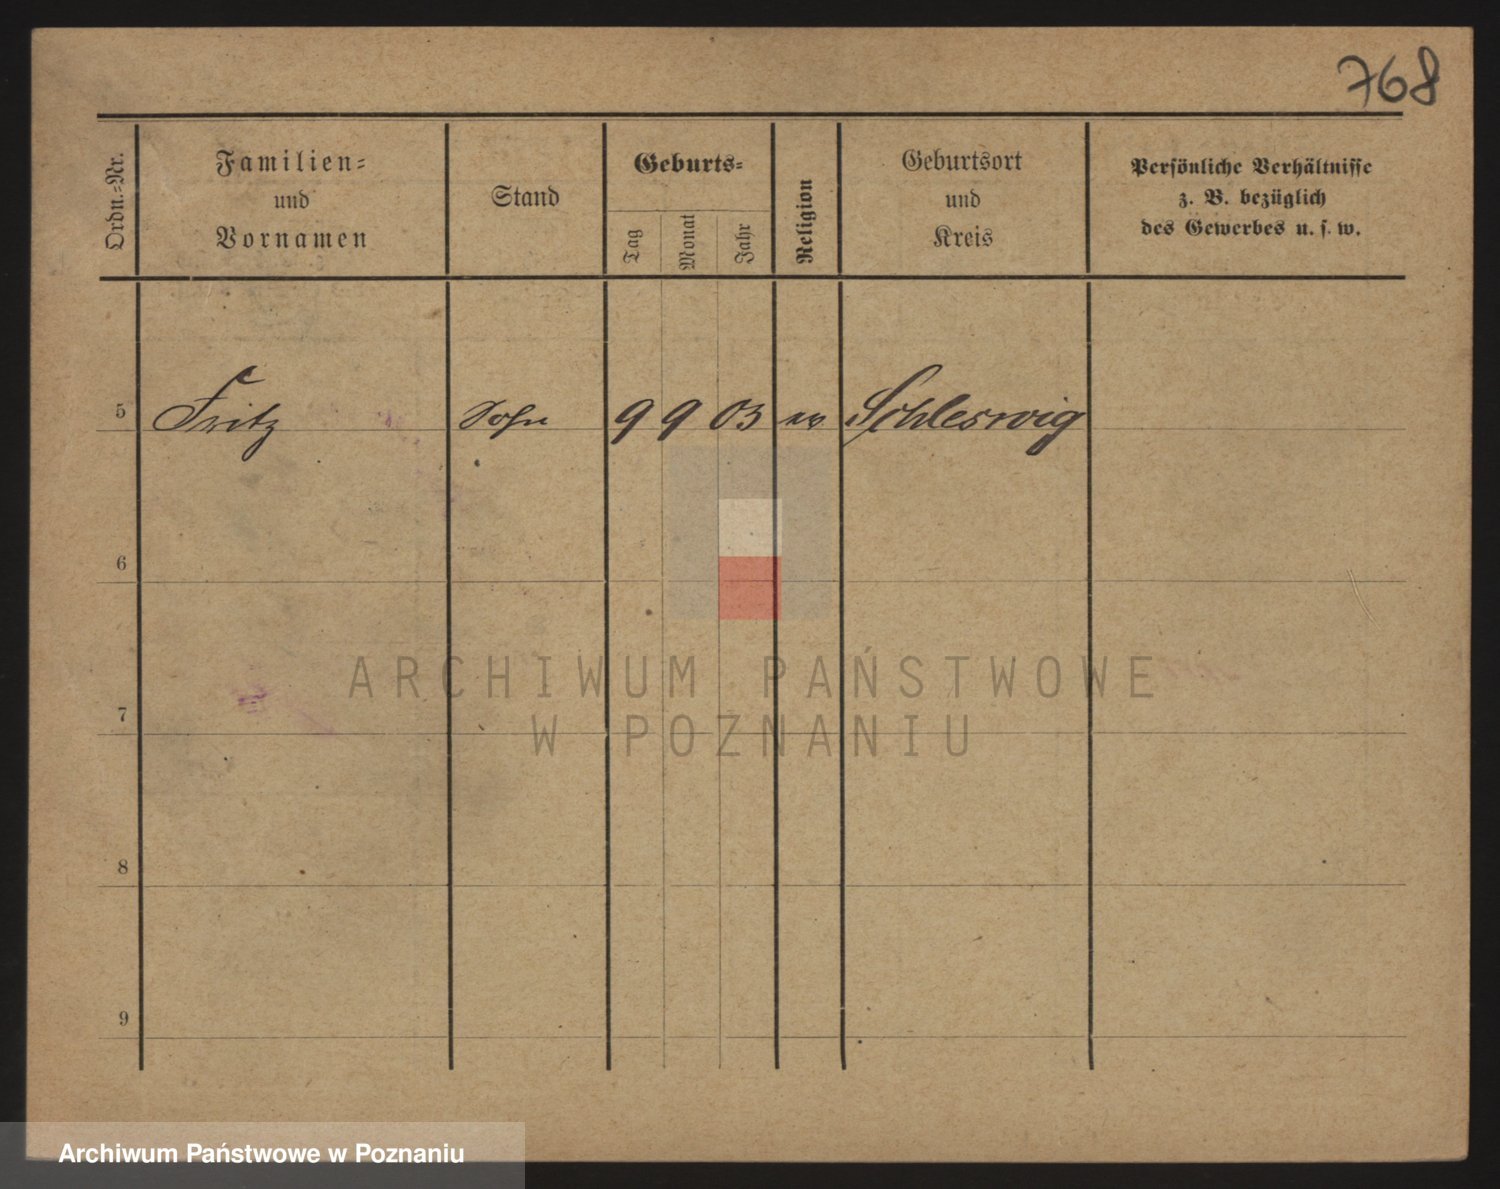 768
Ordn.-Nr.
Familien-
und
Vornamen
Stand
Geburts-
Tag
Monat
Jahr
Religion
Geburtsort
und
Kreis
Persönliche Verhältnisse
z. B. bezüglich
des Gewerbes u. s. w.
5 Fritz Sohn 9 9 03 ev Schleswig
6
7
8
9
ARCHIWUM PAŃSTWOWE
W POZNANIU
Archiwum Państwowe w Poznaniu